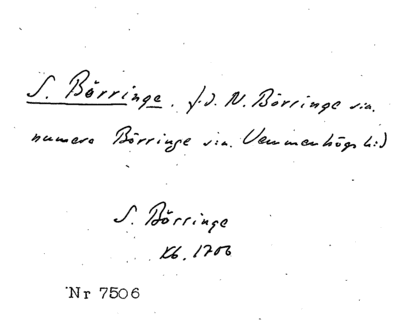 S. Börringe. f.d. N. Börringe sn.
numera Börringe sn. Vemmenhögs h:d
S. Börringe
Kb. 1706
Nr 7506